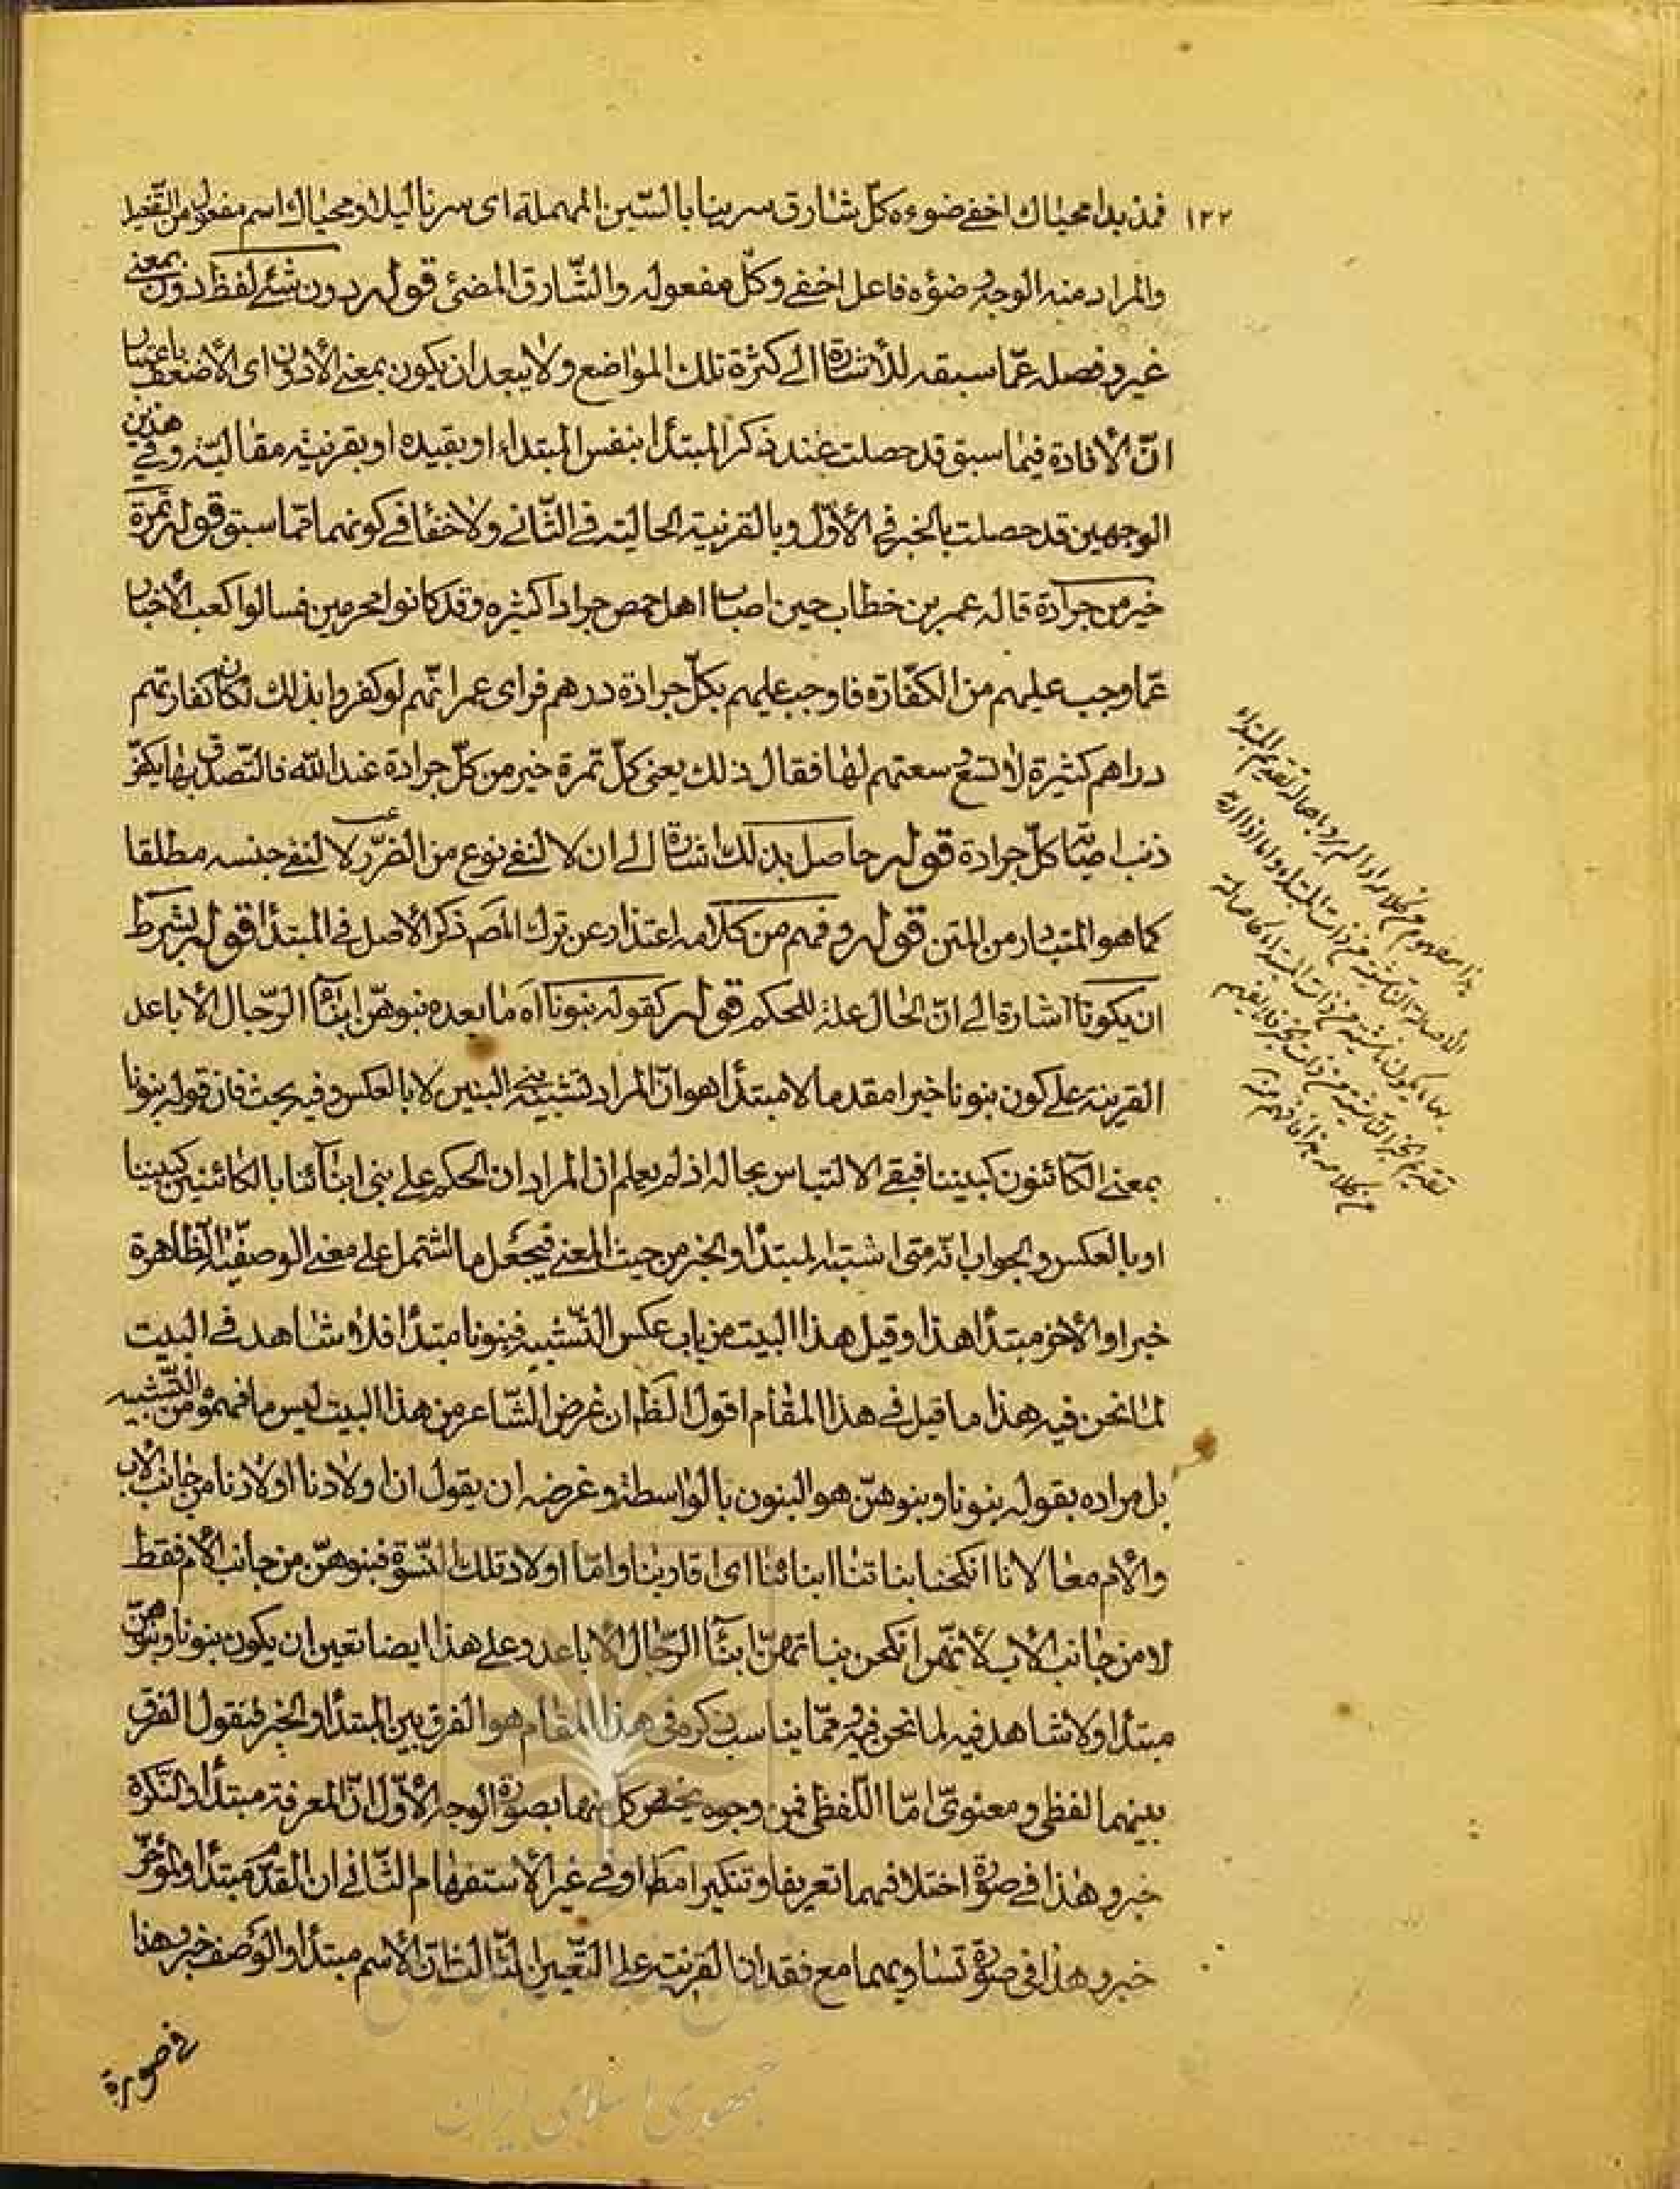 ١٢٢ فمذ بدا محياك اخفى ضوءه كلّ شارق سرينا بالسّين المهملة اى سرنا ليلا و محياك اسم مفعول من التّفعيل
والمراد منه الوجه و ضوؤه فاعل اخفى وكلّ مفعوله والشّارق المضئ قوله دون شئ لفظ دون بمعنى
غير و فصله عمّا سبقه للأشارة الى كثرة تلك المواضع ولا يبعد ان يكون بمعنى الأدون اى الأضعف باعتبار
انّ الأفادة فيما سبق قد حصلت عند ذكر المبتدا بنفس المبتداء او بقيده او بقرنية مقالية و فى هذين
الوجهين قد حصلت بالخبر فى الأوّل و بالقرنية الحالية فى الثّانى ولا خفأ فى كونهما ممّا سبق قوله تمرة
خير من جرادة قاله عمر بن خطاب حين اصاب اهل حمص جرادا كثيره و قد كانوا محرمين فسالوا كعب الأخبار
عمّا وجب عليهم من الكفّارة فاوجب عليهم بكلّ جرادة درهم فراى عمر انّهم لو كفروا بذلك لكان كفارتهم
دراهم كثيرة لا تسع سعتهم لها فقال ذلك يعنى كلّ تمرة خير من كلّ جرادة عند الله فالتّصدق بها يكفّر
ذنب اصابة كلّ جرادة قوله حاصل بذلك اشارة الى ان لا لنفى نوع من الضّرر لا لنفى جنسه مطلقا
كما هو المتبادر من المتن قوله و فهم من كلامه اعتذار عن ترك المصَ ذكر الأصل فى المبتدا قوله بشرط
ان يكونا اشارة الى انّ الحال علة للحكم قوله كقوله بنونا اه ما بعده بنوهنّ ابنأ الرّجال الأباعد
القرينة على كون بنونا خبرا مقدما لا مبتدأ هو انّ المراد تشبيه بنى البنين لا بالعكس و فيه بحث فان قوله بنونا
بمعنى الكائنون كبيننا فبقى الالتباس بحاله اذ لم يعلم ان المراد ان الحكم على بنى ابنآئنا بالكائنين كبيننا
او بالعكس والجواب انّه متى اشتبه المبتدأ والخبر من حيث المعنى فيجعل ما اشتمل على معنى الوصفيّة الظاهرة
خبرا والأخر مبتدأ هذا و قيل هذا البيت من باب عكس التّشبيه فبنونا مبتدأ فلا شاهد فى البيت
لما نحن فيه هذا ما قيل فى هذا المقام اقول الظَ ان غرض الشّاعر من هذا البيت ليس ما فهموه من التّشبيه
بل مراده بقوله بنونا و بنوهنّ هو البنون بالواسطة و غرضه ان يقول ان اولادنا اولادنا من جانب الأب
والأم معا لانا انكحنا بناتنا ابنائنا اى اقاربنا و امّا اولاد تلك النّسوة فبنوهنّ من جانب الأم فقط
لا من جانب الأب لأنّهم انكحن بناتهنّ ابنأ الرّجال الأباعد و على هذا ايضا تعين ان يكون بنونا و بنوهنّ
مبتدأ ولا شاهد فيه لما نحن فيه و ممّا يناسب ذكره فى هذا المقام هو الفرق بين المبتدأ والخبر فنقول الفرق
بينهما لفظى و معنوىّ امّا اللّفظى فمن وجوه يختص كل منهما بصورة الوجه الأوّل انّ المعرفة مبتدأ والنّكرة
خبر و هذا فى صورة اختلافهما تعريفا و تنكيرا مطَ او فى غير الأستفهام الثّانى ان المقدّم مبتدأ والمؤخّر
خبر و هذا فى صورة تساويهما مع فقدان القرينة على التّعيين الثّالث انّ الأسم مبتدأ والوصف خبر و هذا
فى صورة
جمهورى اسلامى ايران